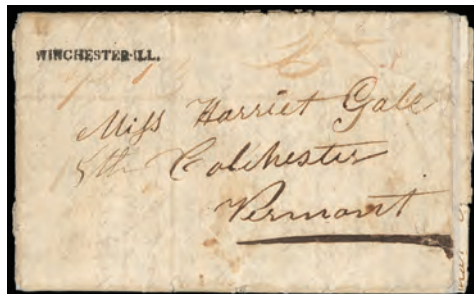 WINCHESTER-ILL.
Miss Harriet Gale
Colchester
Vermont